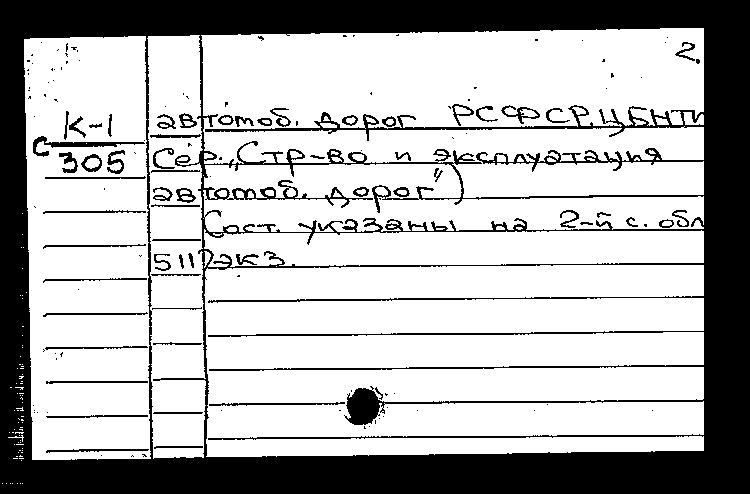 2.
К-1 автомоб. дорог РСФСР. ЦБНТИ
С 305 Сер. „Стр-во и эксплуатация
автомоб. дорог")
Сост. указаны на 2-й с. обл
экз.